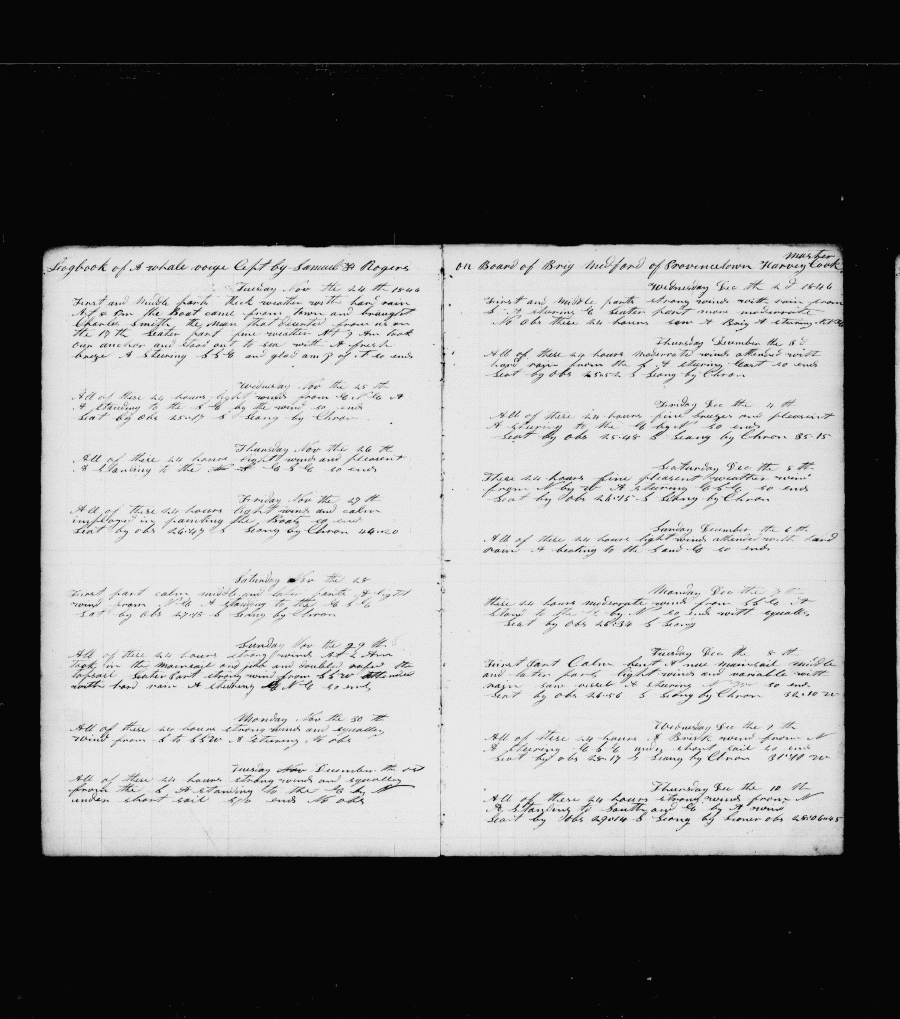 Logbook of A whale voige Cept by Samuel H Rogers
Tuesday Nov the 24 th 1846
First and Middle parts thick weather with hard rain
At 8 Pm the Boat came from town and braught
Charles Smith the Man that deserted from us on
the 17 th Leater part fine weather At 7 Am took
our anchor and stood out to sea with A fresh
breze A Stearing S S E and glad am I of it so ends
Wednesday Nov the 25 th
All of these 24 hours light winds from
A Standing to the S E by the wind so ends
Lat by Obs 25=17 S Long by Chron
Thursday Nov the 26 th
All of these 24 hours light winds and pleasent
A Standing to the E S E so ends
Friday Nov the 27 th
All of these 24 hours light winds and calm
imployed in painting the Boats so end
Lat by obs 26=47 S Long by Chron 44=20
Saturday Nov the 28
First part calm middle and later parts A light
wind from N E A Standing to the E S E
Lat by Obs 27=43 S Long by Chron
Sunday Nov the 29 th
All of these 24 hours strong winds At 2 Am
took in the mainsail and jibb and doubled reefed the
topsail Leater Part strong wind from S S W attended
with hard rain A Stearing E N E so ends
Monday Nov the 30 th
All of these 24 hours strong winds and squally
Wind from S to S S W A Stearing No obs
Tuesday Nov December the 1st
All of these 24 hours strong winds and squally
from the S A Standing to the E by N
under short sail S/o ends No obs
master
on Board of Brig Medford of Provincetown Harvey Cook
Wednesday Dec th 2 d 1846
First and Middle parts strong winds with rain from
S A stearing E Leater part more moderate
No Obs these 24 hours saw A Brig A stearing
Thursday December the 3 d
All of these 24 hours moderate winds attended with
hard rain from the S A stearing East so ends
Leat by Obs 25=52 S Leong by Chron
Friday Dec the 4 th
All of these 24 hours fine breezes and pleasent
A steaping to the E by N so ends
Leat by obs 25-48 S Leong by Chron 35-15
Leaturday Dec the 5 th
These 24 hours fine pleasent weather wind
from N by W A stearing E S E so ends
Leat by Obs 26=15 S Leong by Chron
Sunday December the 6 th
All of these 24 hours light winds attended with hard
rain A beating to the S and E so ends
Monday Dec the 7 th
these 24 hours moderate winds from S S E A
Stand to the E by N so ends with squalls
Leat by obs 26=34 S Leong
Tuesday Dec the 8 th
First Part Calm bent A new mainsail middle
and later parts light winds and variable with
rain saw vessel A stearing N W so ends
Leat by obs 26=56 S Leong by Chron 32=10 W
Wednesday Dec the 9 th
All of these 24 hours A Brisk wind from N
A stearing E S E under short sail so end
Leat by obs 28=17 S Leong by Chron 31°41 W
Thursday Dec the 10 th
All of these 24 hours strong winds from N
A Standing to South and E by A wind
Leat by Obs 29=14 S Leong by Leuner obs 28=06=45